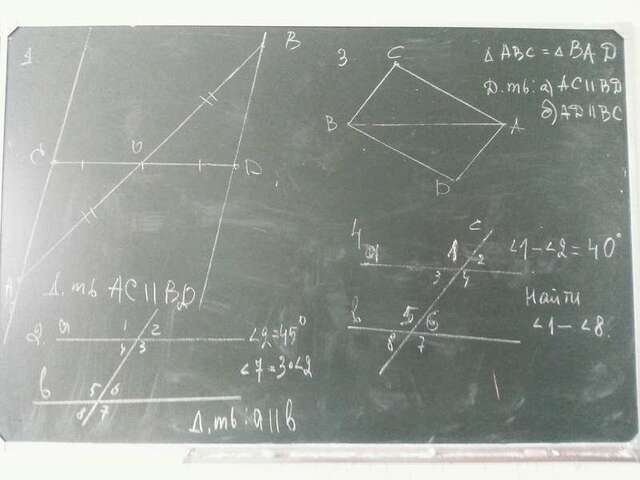 1
B
C
O
D
A
Д. ть AC || BD
3.
C
B
A
D
△ ABC = △ BAD
Д. ть: а) AC || BD
б) AD || BC
2.
a
1 2
4 3
∠2 = 45°
∠7 = 3·∠2
b
5 6
8 7
Д. ть: a || b
4
a
c
1 2
3 4
∠1 - ∠2 = 40°
b
5 6
8 7
Найти
∠1 - ∠8.